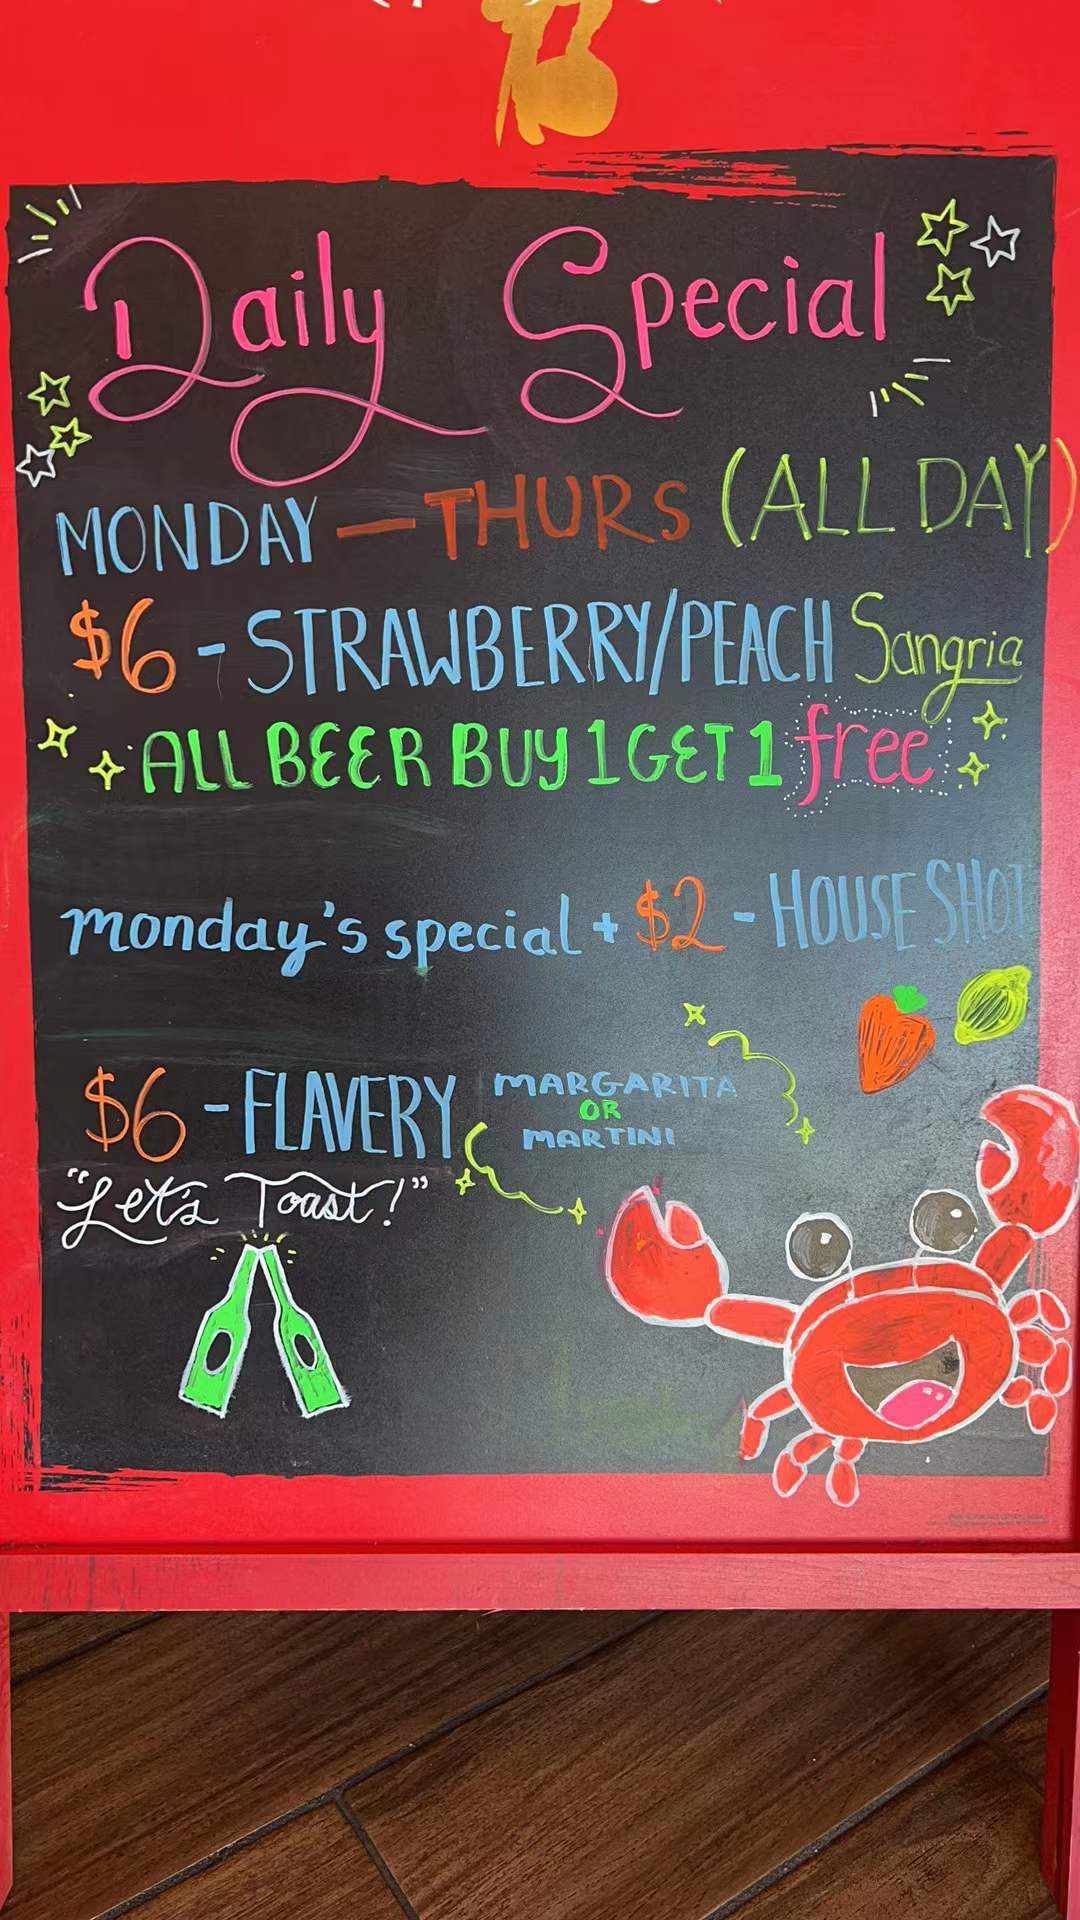 Daily Special
MONDAY — THURS (ALL DAY)
$6 - STRAWBERRY/PEACH Sangria
ALL BEER BUY 1 GET 1 free
monday's special + $2 - HOUSE SHOT
$6 - FLAVERY MARGARITA
OR
MARTINI
"Let's Toast!"